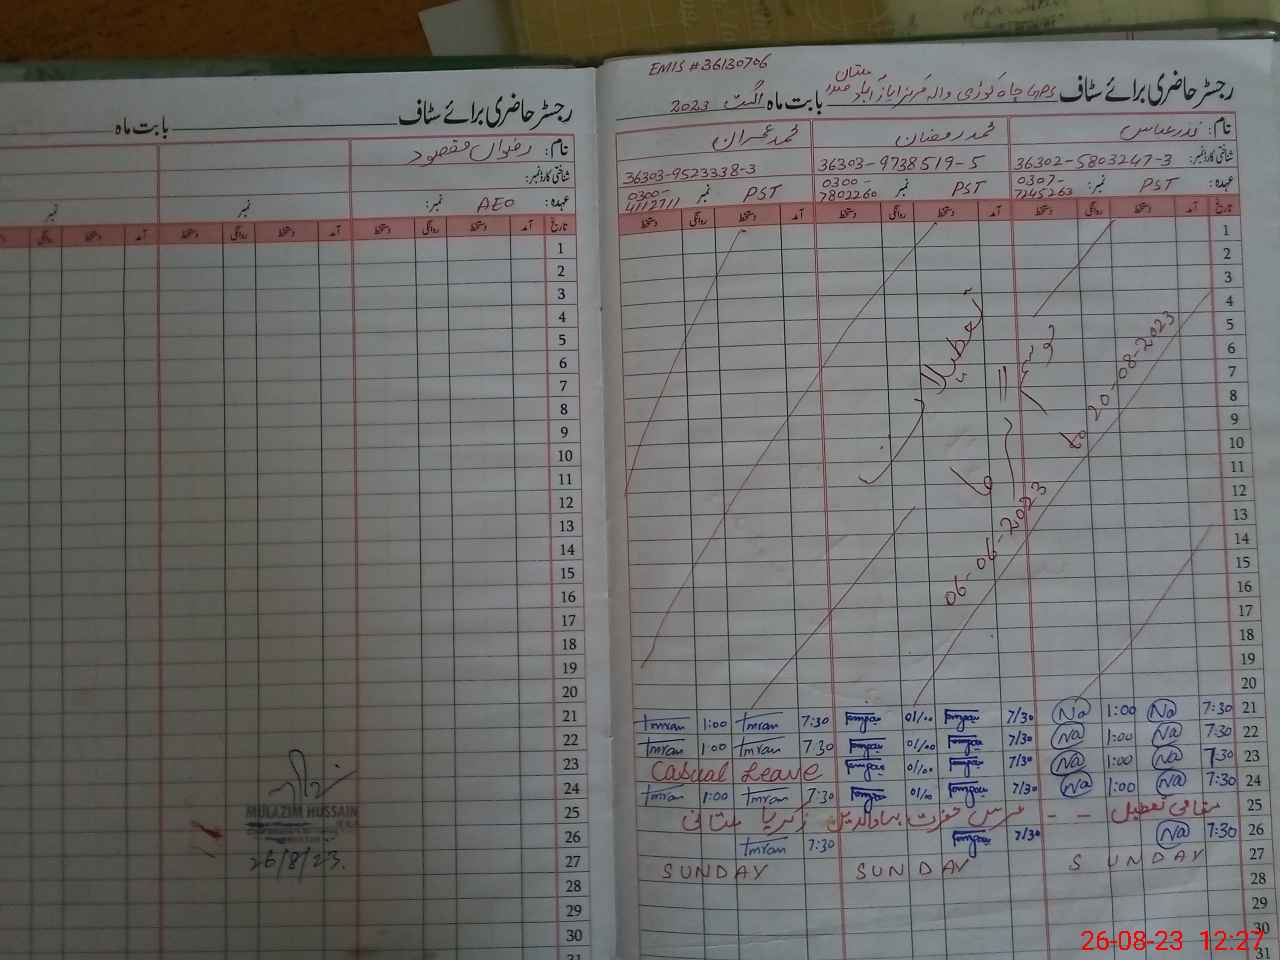 EMIS # 36130706
رجسٹر حاضری برائے سٹاف GPS چاہ کوڑی والہ بابت ماہ اگست 2023
نام: نذر عباس محمد رمضان محمد عمران
شناختی کارڈ نمبر: 36302-5803247-3 36303-9738519-5 36303-9523338-3
عہدہ: PST نمبر: 0307-7245263 PST نمبر 0300-7802260 PST نمبر 0300-4112711
تاریخ آمد دستخط روانگی دستخط آمد دستخط روانگی دستخط آمد دستخط روانگی دستخط
1
2
3
4
5
6
7
8
9
10
11
12
13
14
15
16
17
18
19
20
موسم گرما
تعطیلات
06-06-2023 to 20-08-2023
21 7:30 Na 1:00 Na 7/30 01/00 7:30 Imran 1:00 Imran
22 7:30 Na 1:00 Na 7/30 01/00 7:30 Imran 1:00 Imran
23 7:30 Na 1:00 Na 7/30 01/00 Casual Leave
24 7:30 Na 1:00 Na 7/30 01/00 7:30 Imran 1:00 Imran
25 مقامی تعطیل - - عرس حضرت بہاوالدین زکریا ملتانی
26 7:30 Na 7/30 7:30 Imran
27 SUNDAY SUNDAY SUNDAY
28
29
30
31
رجسٹر حاضری برائے سٹاف بابت ماہ
نام: رضوان مقصود
شناختی کارڈ نمبر:
عہدہ: AEO نمبر: نمبر نمبر
تاریخ آمد دستخط روانگی دستخط آمد دستخط روانگی دستخط آمد دستخط روانگی
1
2
3
4
5
6
7
8
9
10
11
12
13
14
15
16
17
18
19
20
21
22
23
24
25
26
27
28
29
30
31
MULAZIM HUSSAIN
26/8/23.
26-08-23 12:27